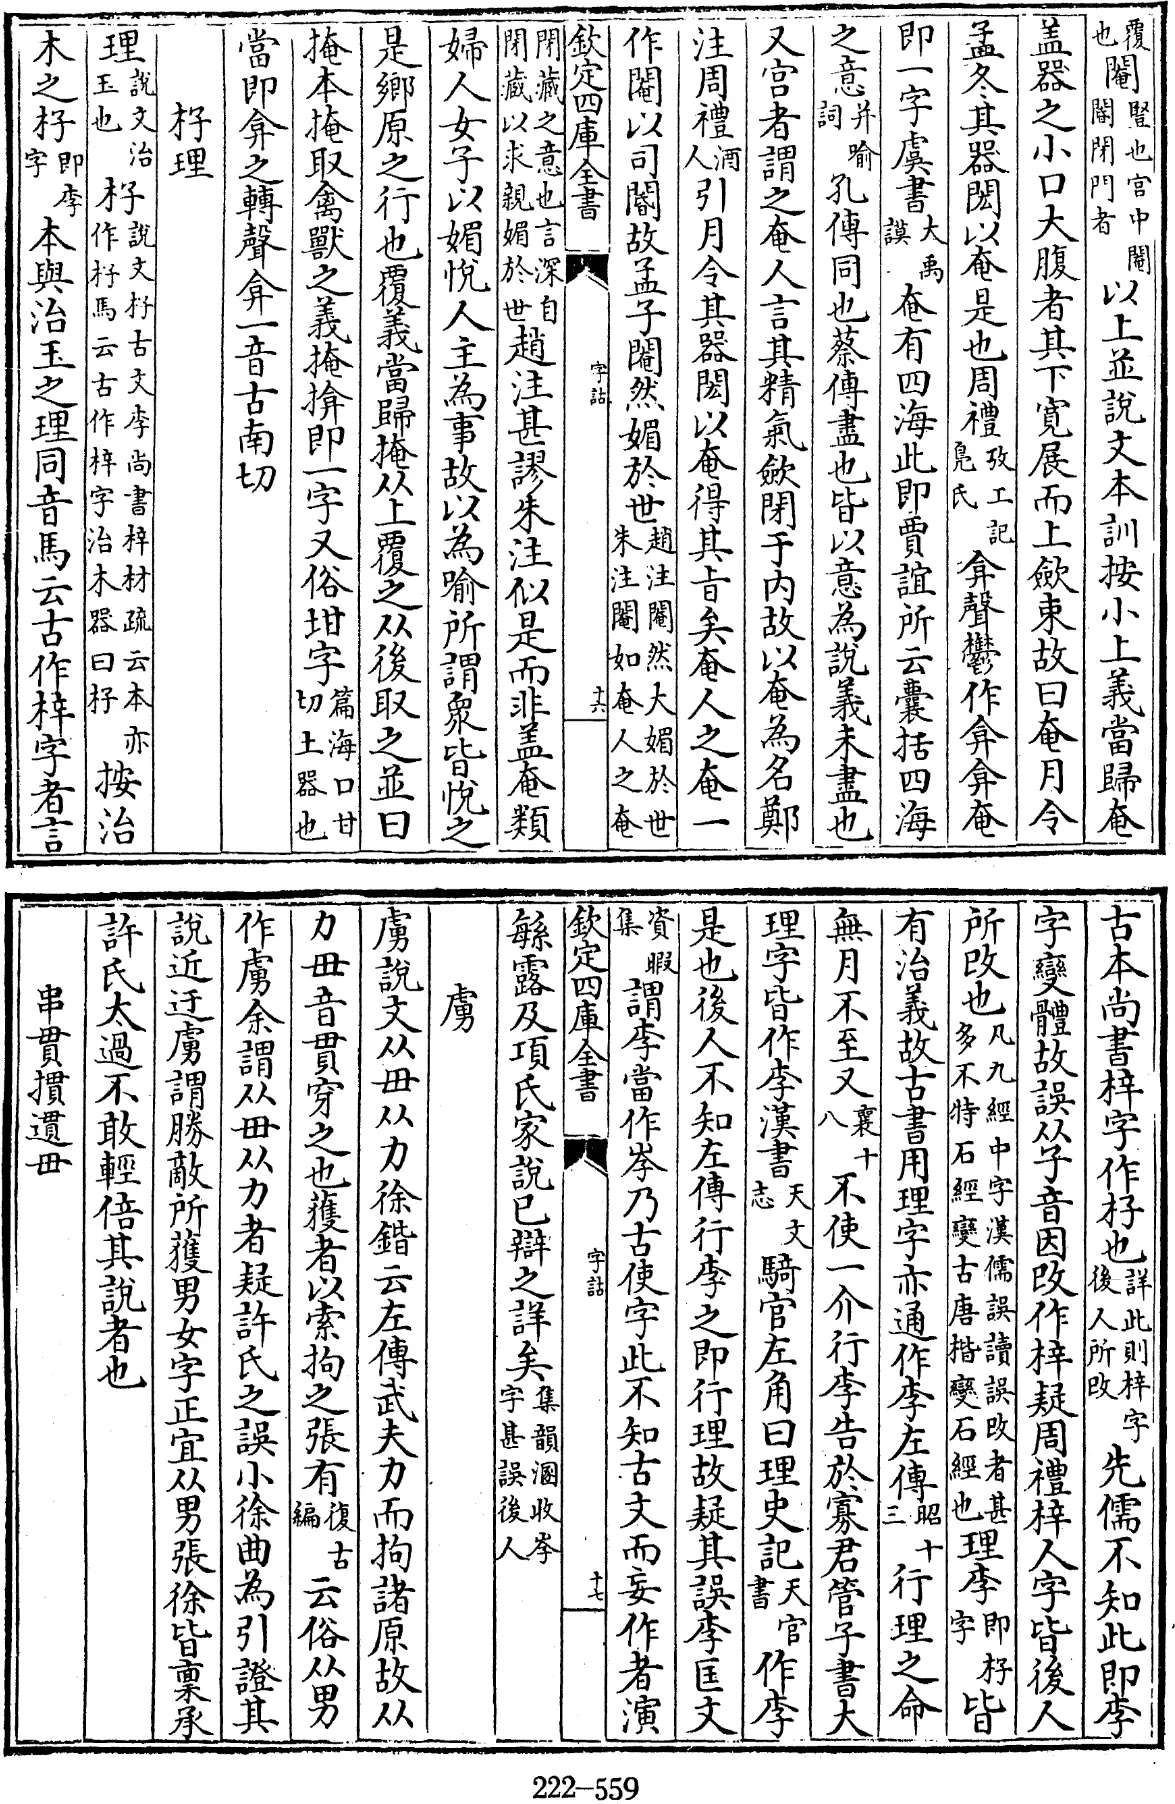 覆也閹豎也宮中閹閽閉門者以上並說文本訓按小上義當歸奄
盖器之小口大腹者其下寛展而上歛束故曰奄月令
孟冬其器閎以奄是也周禮攷工記鳬氏弇聲鬱作弇弇奄
即一字虞書大禹謨奄有四海此即賈誼所云囊括四海
之意并喻詞孔傳同也蔡傳盡也皆以意為說義未盡也
又宫者謂之奄人言其精氣歛閉于内故以奄為名鄭
注周禮酒人引月令其器閎以奄得其㫖矣奄人之奄一
作閹以司閽故孟子閹然媚於世趙注閹然大媚於世朱注閹如奄人之奄
欽定四庫全書 字詁 十六
閉藏之意也言深自閉藏以求親媚於世趙注甚謬朱注似是而非盖奄類
婦人女子以媚悅人主為事故以為喻所謂衆皆悅之
是鄉原之行也覆義當歸掩从上覆之从後取之並曰
掩本掩取禽獸之義掩揜即一字又俗坩字篇海口甘切土器也
當即弇之轉聲弇一音古南切
杍理
理說文治玉也杍說文杍古文李尚書梓材疏云本亦作杍馬云古作梓字治木器曰杍按治
木之杍即李字本與治玉之理同音馬云古作梓字者言
古本尚書梓字作杍也詳此則梓字後人所改先儒不知此即李
字變體故誤从子音因改作梓疑周禮梓人字皆後人
所改也凡九經中字漢儒誤讀誤改者甚多不特石經變古唐楷變石經也理李即杍字皆
有治義故古書用理字亦通作李左傳昭十三行理之命
無月不至又襄十八不使一介行李告於寡君管子書大
理字皆作李漢書天文志騎官左角曰理史記天官書作李
是也後人不知左傳行李之即行理故疑其誤李匡文
資暇集謂李當作岺乃古使字此不知古文而妄作者演
欽定四庫全書 字詁 十七
繇露及項氏家說已辯之詳矣集韻溷收岺字甚誤後人
虜
虜說文从毌从力徐鍇云左傳武夫力而拘諸原故从
力毌音貫穿之也獲者以索拘之張有復古編云俗从男
作虜余謂从毌从力者疑許氏之誤小徐曲為引證其
說近迂虜謂勝敵所獲男女字正宜从男張徐皆稟承
許氏太過不敢輕倍其說者也
串貫摜遺毌
222-559